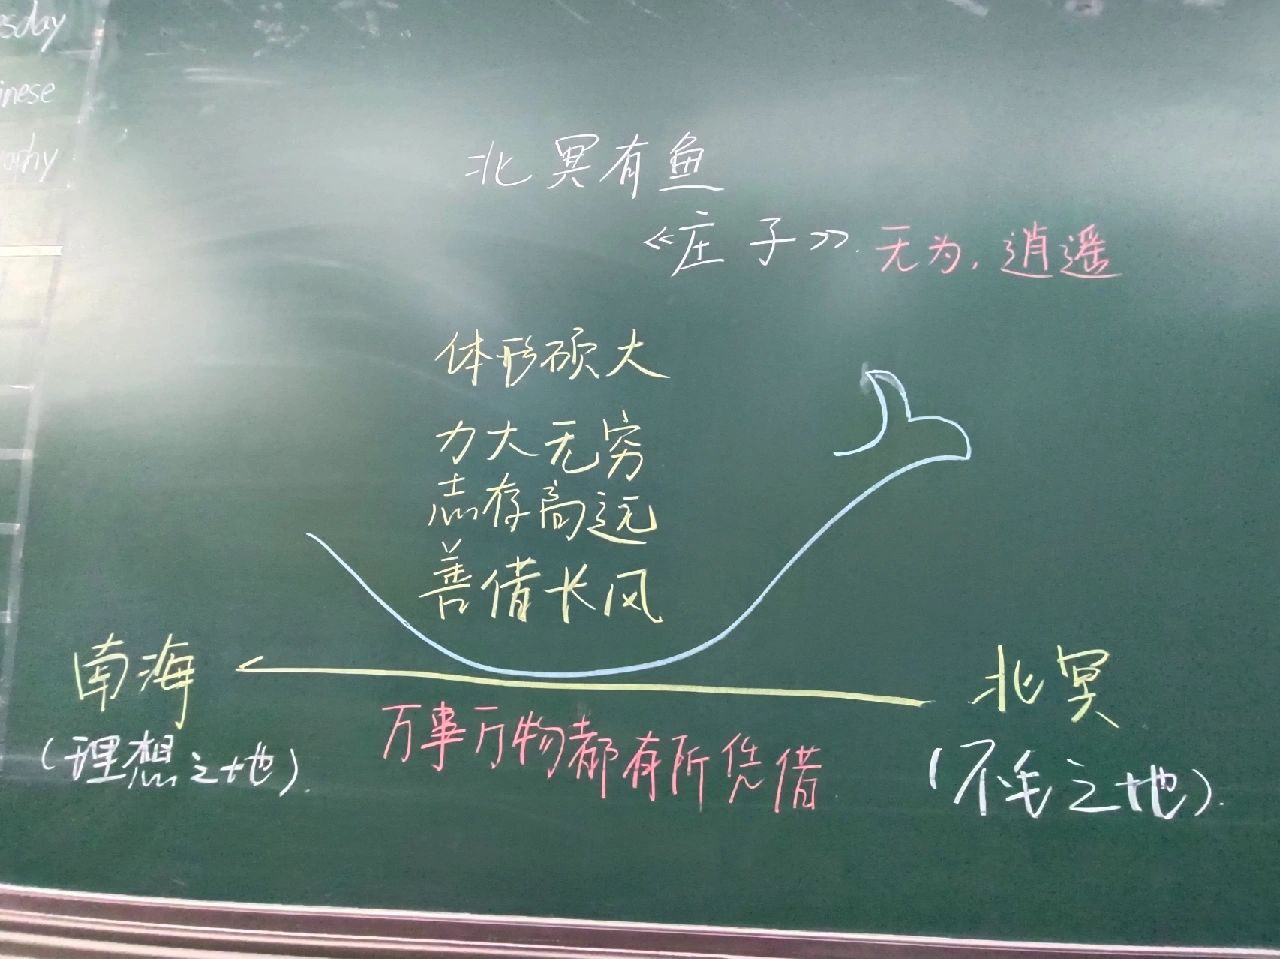 北冥有鱼
《庄子》. 无为, 逍遥
体形硕大
力大无穷
志存高远
善借长风
南海
北冥
(理想之地).
万事万物都有所凭借.
(不毛之地).